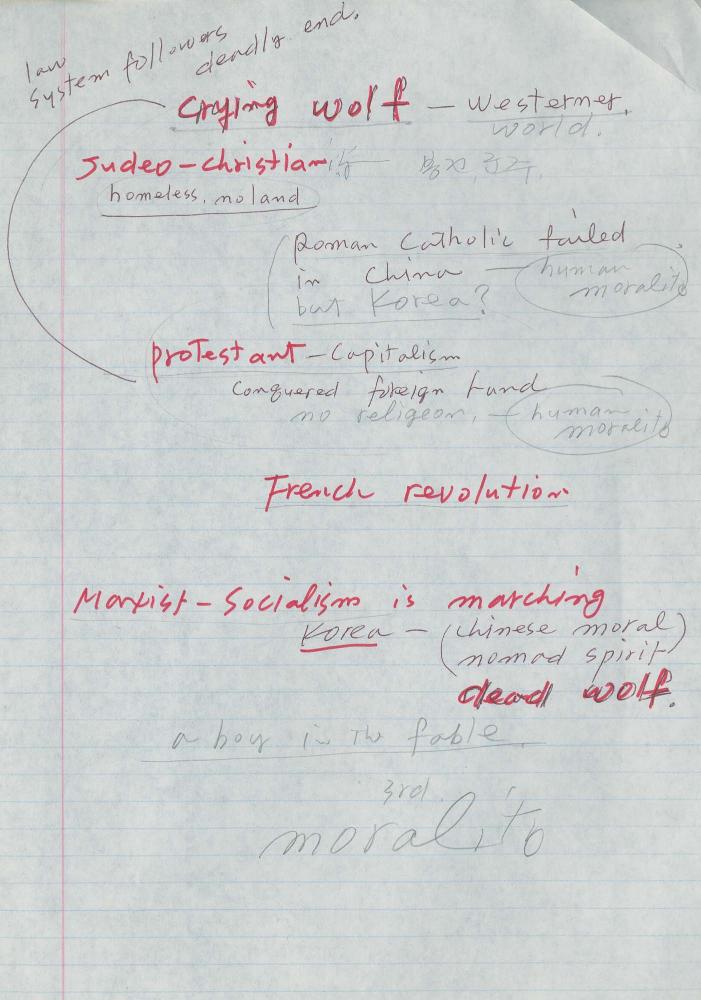 law
system followers
deadly end.
Crying wolf – Westerner.
world.
Judeo-christian
homeless, no land
Roman Catholic failed
in China — human
morality
but Korea?
protestant – Capitalism
Conquered foreign land
no religeon, – human
morality
French revolution
Marxist – Socialism is marching
Korea – (Chinese moral)
nomad spirit)
dead wolf.
a boy in the fable.
3rd
morality